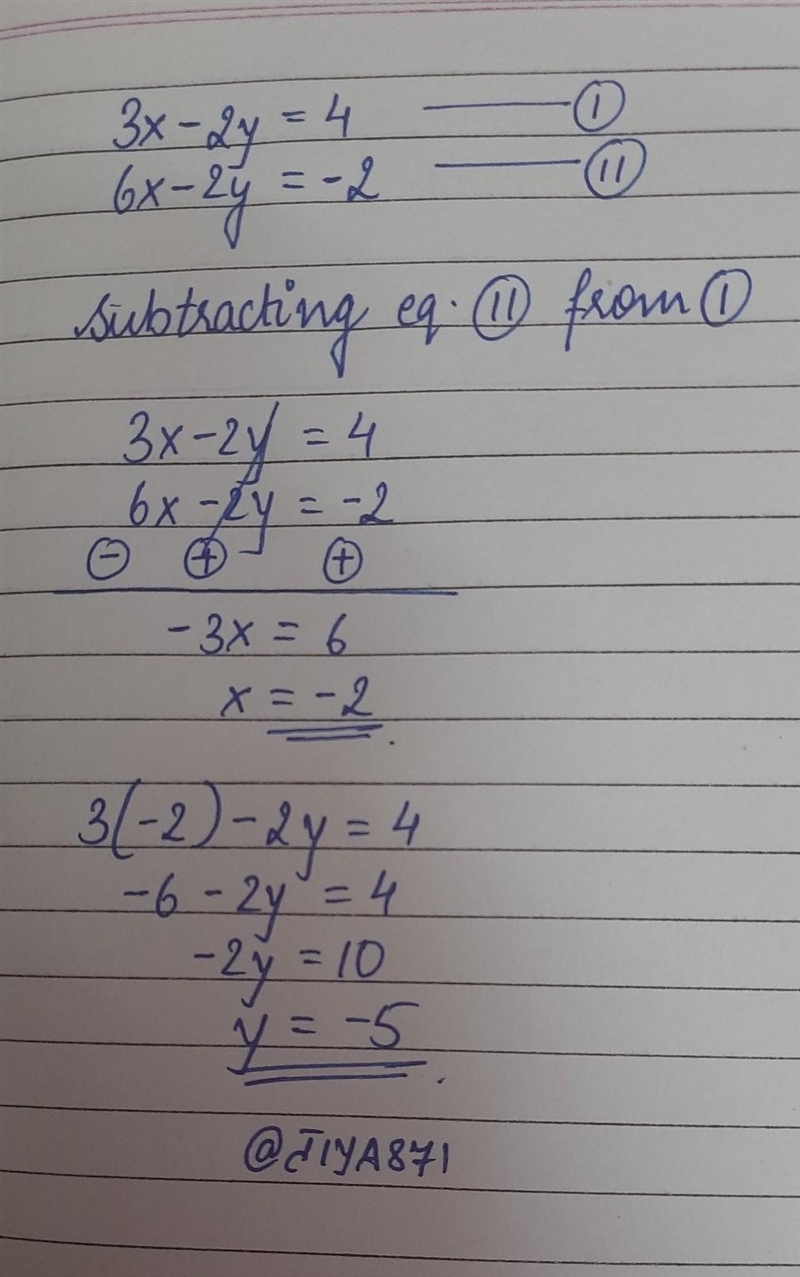 3x - 2y = 4 —— Ⓘ
6x - 2y = -2 —— (II)
subtracting eq. (II) from Ⓘ
3x - 2y = 4
6x - 2y = -2
⊖ ⊕ ⊕
-3x = 6
x = -2.
3(-2) - 2y = 4
-6 - 2y = 4
-2y = 10
y = -5.
@JIYA871